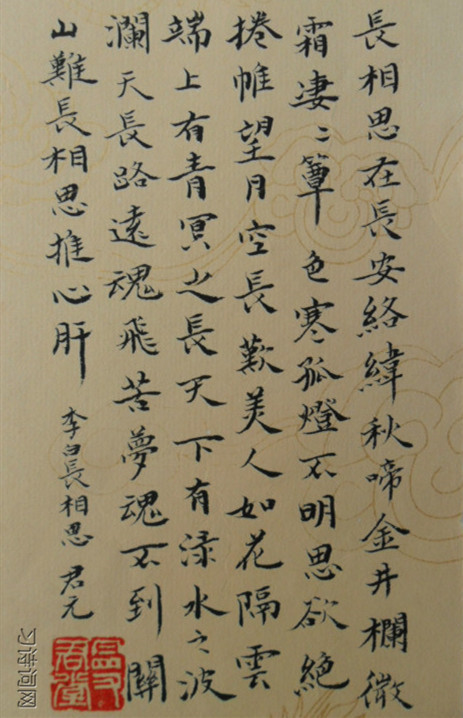 長相思在長安絡緯秋啼金井欄微
霜凄〻簟色寒孤燈不明思欲絶
捲帷望月空長歎美人如花隔雲
端上有青冥之長天下有渌水之波
瀾天長路遠魂飛苦夢魂不到關
山難長相思摧心肝
李白長相思 君元
习诗词网